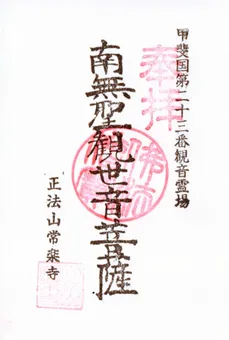 甲斐国第二十三番観音霊場
奉拝
南無聖観世音菩薩
正法山常楽寺